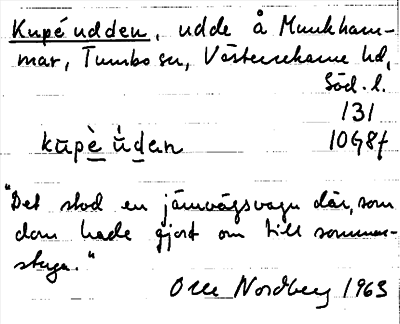 Kupéudden, udde å Munkham-
mar, Tumbo sn, Västerrekarne hd,
Söd. l.
131
10G8f
kūpè ùdan
"Det stod en järnvägsvagn där, som
dom hade gjort om till sommar-
stuga."
Olle Nordberg 1963